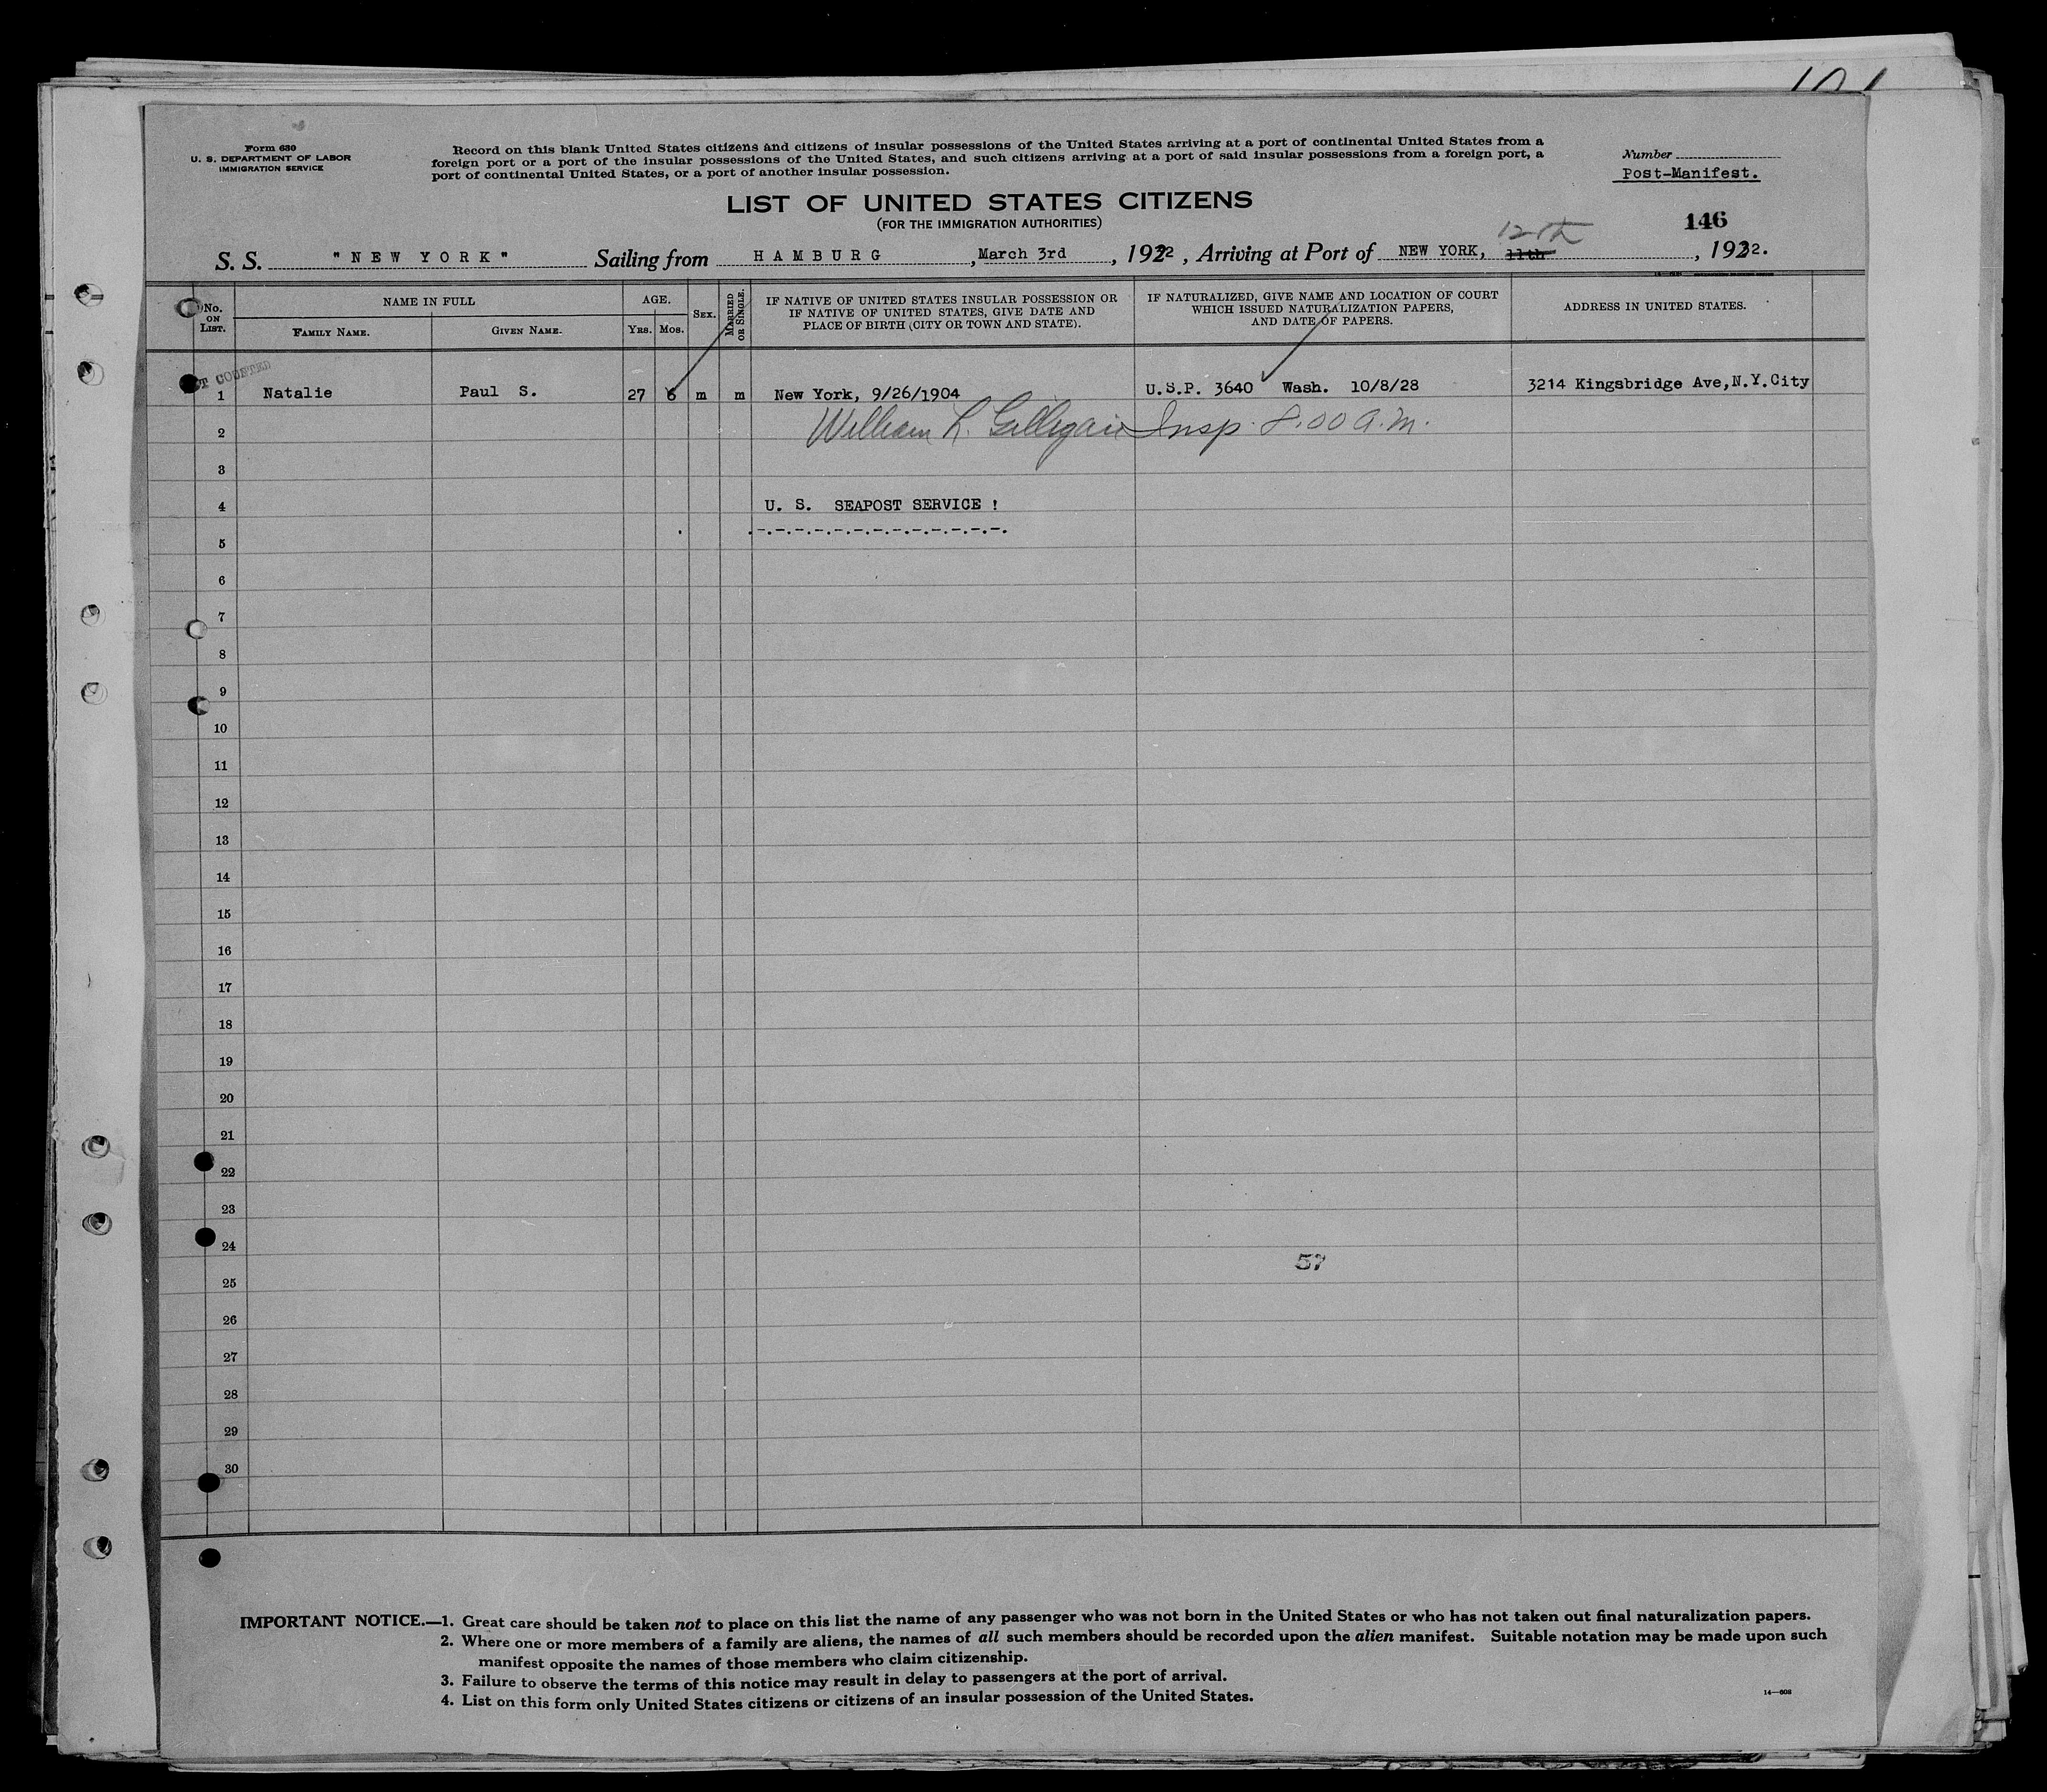 101
Form 630
U. S. DEPARTMENT OF LABOR
IMMIGRATION SERVICE
Record on this blank United States citizens and citizens of insular possessions of the United States arriving at a port of continental United States from a
foreign port or a port of the insular possessions of the United States, and such citizens arriving at a port of said insular possessions from a foreign port, a
port of continental United States, or a port of another insular possession.
Number
Post-Manifest.
LIST OF UNITED STATES CITIZENS
(FOR THE IMMIGRATION AUTHORITIES)
146
12th
S. S. "NEW YORK" Sailing from HAMBURG, March 3rd, 1932, Arriving at Port of NEW YORK, 11th, 1932.
No. ON LIST.
NAME IN FULL
FAMILY NAME.
GIVEN NAME.
AGE.
YRS.
MOS.
SEX.
MARRIED OR SINGLE.
IF NATIVE OF UNITED STATES INSULAR POSSESSION OR
IF NATIVE OF UNITED STATES, GIVE DATE AND
PLACE OF BIRTH (CITY OR TOWN AND STATE).
IF NATURALIZED, GIVE NAME AND LOCATION OF COURT
WHICH ISSUED NATURALIZATION PAPERS,
AND DATE OF PAPERS.
ADDRESS IN UNITED STATES.
1 Natalie Paul S. 27 6 m m New York, 9/26/1904 U.S.P. 3640 Wash. 10/8/28 3214 Kingsbridge Ave,N.Y.City
2 William L. Gilligan Insp. 8.00 a.m.
3
4 U. S. SEAPOST SERVICE !
5
6
7
8
9
10
11
12
13
14
15
16
17
18
19
20
21
22
23
24
57
25
26
27
28
29
30
IMPORTANT NOTICE.—1. Great care should be taken not to place on this list the name of any passenger who was not born in the United States or who has not taken out final naturalization papers.
2. Where one or more members of a family are aliens, the names of all such members should be recorded upon the alien manifest. Suitable notation may be made upon such
manifest opposite the names of those members who claim citizenship.
3. Failure to observe the terms of this notice may result in delay to passengers at the port of arrival.
4. List on this form only United States citizens or citizens of an insular possession of the United States.
14—608